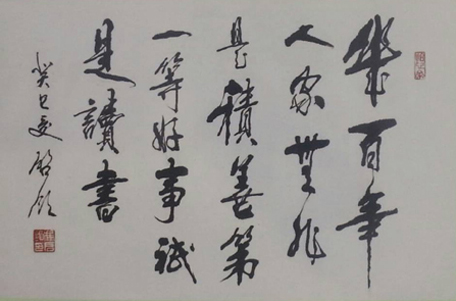 幾百年
人家無非
是積善第
一等好事祇
是讀書
癸巳夏